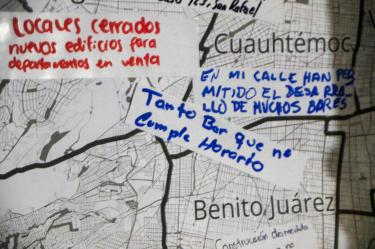 San Rafael
Locales cerrados
nuevos edificios para
departamentos en venta
Cuauhtémoc
EN MI CALLE HAN PER
MITIDO EL DESARRO
LLO DE MUCHOS BARES
Tanto Bar que no
Cumple Horario
Benito Juárez
Construcción desmedida